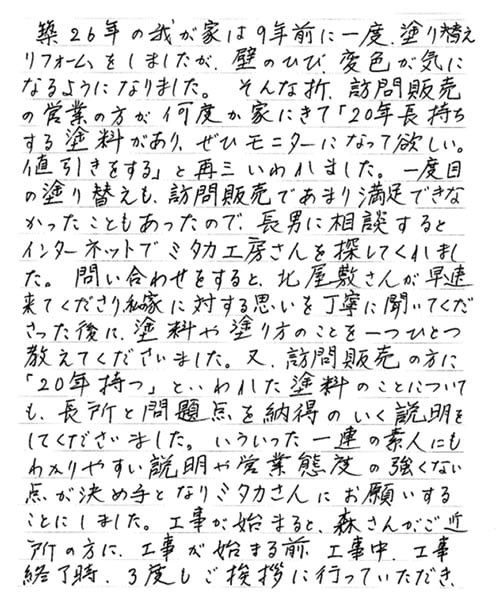 築26年の我が家は9年前に一度、塗り替え
リフォームをしましたが、壁のひび、変色が気に
なるようになりました。そんな折、訪問販売
の営業の方が何度か家にきて「20年長持ち
する塗料があり、ぜひモニターになって欲しい。
値引きをする」と再三いわれました。一度目
の塗り替えも、訪問販売であまり満足できな
かったこともあったので、長男に相談すると
インターネットでミタカ工房さんを探してくれまし
た。問い合わせをすると、北屋敷さんが早速
来てくださり私家に対する思いを丁寧に聞いてくだ
さった後に、塗料や塗り方のことを一つひとつ
教えてくださいました。又、訪問販売の方に
「20年持つ」といわれた塗料のことについて
も、長所と問題点を納得のいく説明を
してくださいました。いういった一連の素人にも
わかりやすい説明や営業態度の強くない
点が決め手となりミタカさんにお願いする
ことにしました。工事が始まると、森さんがご近
所の方に、工事が始まる前、工事中、工事
終了時、3度もご挨拶に行っていただき、